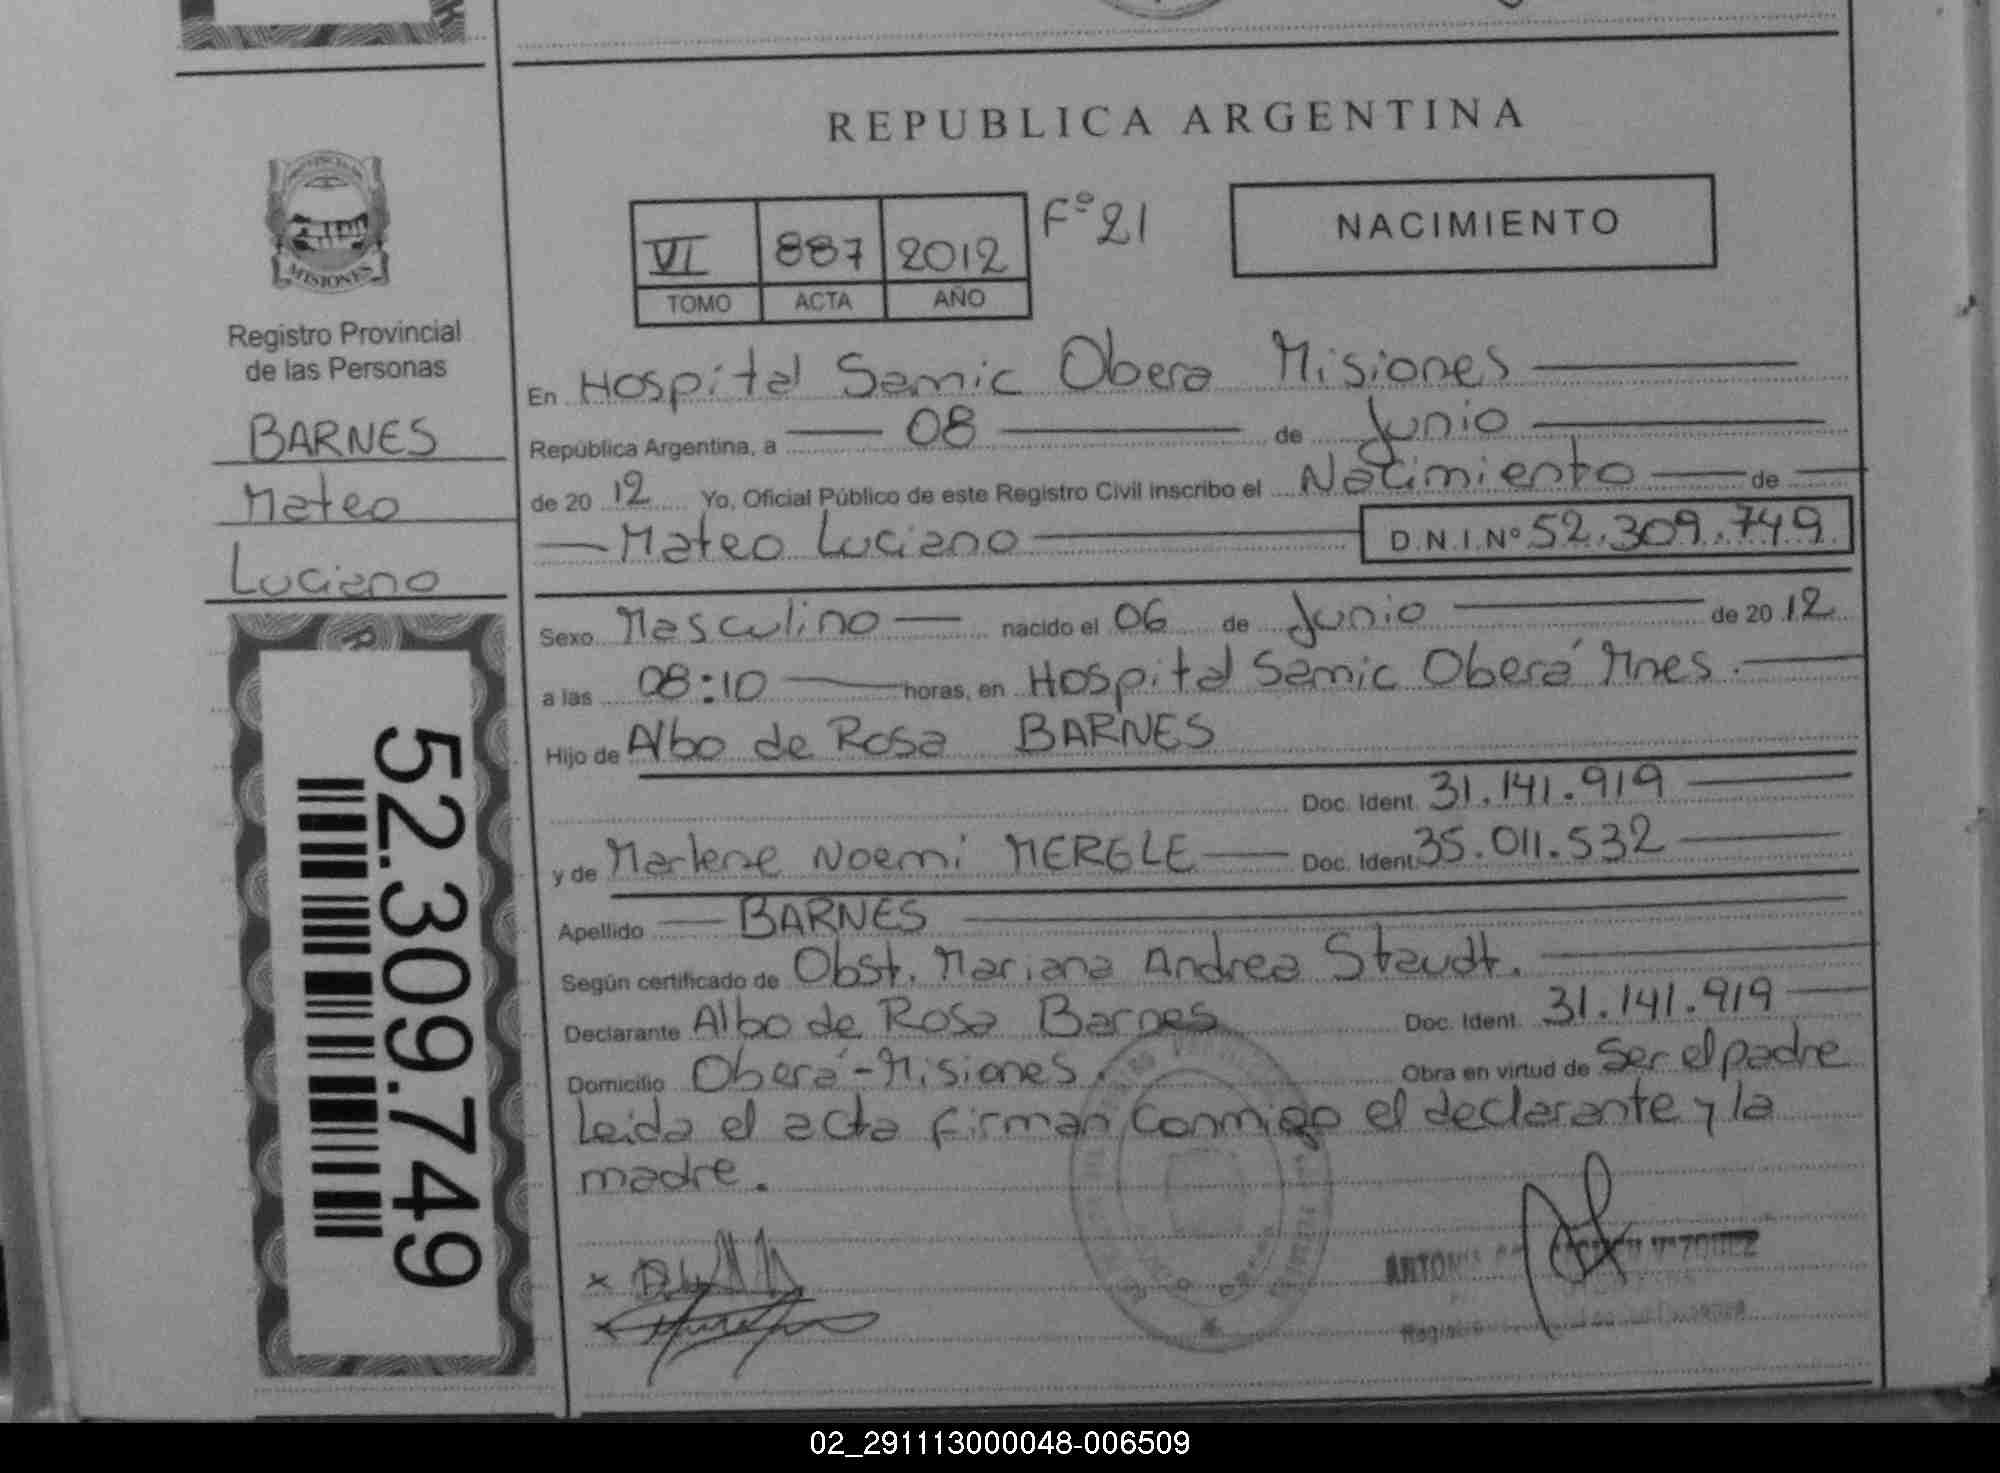 REPUBLICA ARGENTINA
MISIONES
Registro Provincial
de las Personas
BARNES
Mateo
Luciano
52.309.749
VI 887 2012 Fº 21
TOMO ACTA AÑO
NACIMIENTO
En Hospital Samic Obera Misiones
República Argentina, a 08 de Junio
de 20 12 Yo, Oficial Público de este Registro Civil inscribo el Nacimiento de
Mateo Luciano D.N.I.Nº 52.309.749
Sexo Masculino nacido el 06 de Junio de 20 12
a las 08:10 horas, en Hospital Samic Oberá Mnes.
Hijo de Albo de Rosa BARNES
Doc. Ident. 31.141.919
y de Marlene Noemi MERGLE Doc. Ident. 35.011.532
Apellido BARNES
Según certificado de Obst. Mariana Andrea Staudt.
Declarante Albo de Rosa Barnes Doc. Ident. 31.141.919
Domicilio Oberá-Misiones. Obra en virtud de Ser el padre
Leida el acta firman conmigo el declarante y la
madre.
02_291113000048-006509